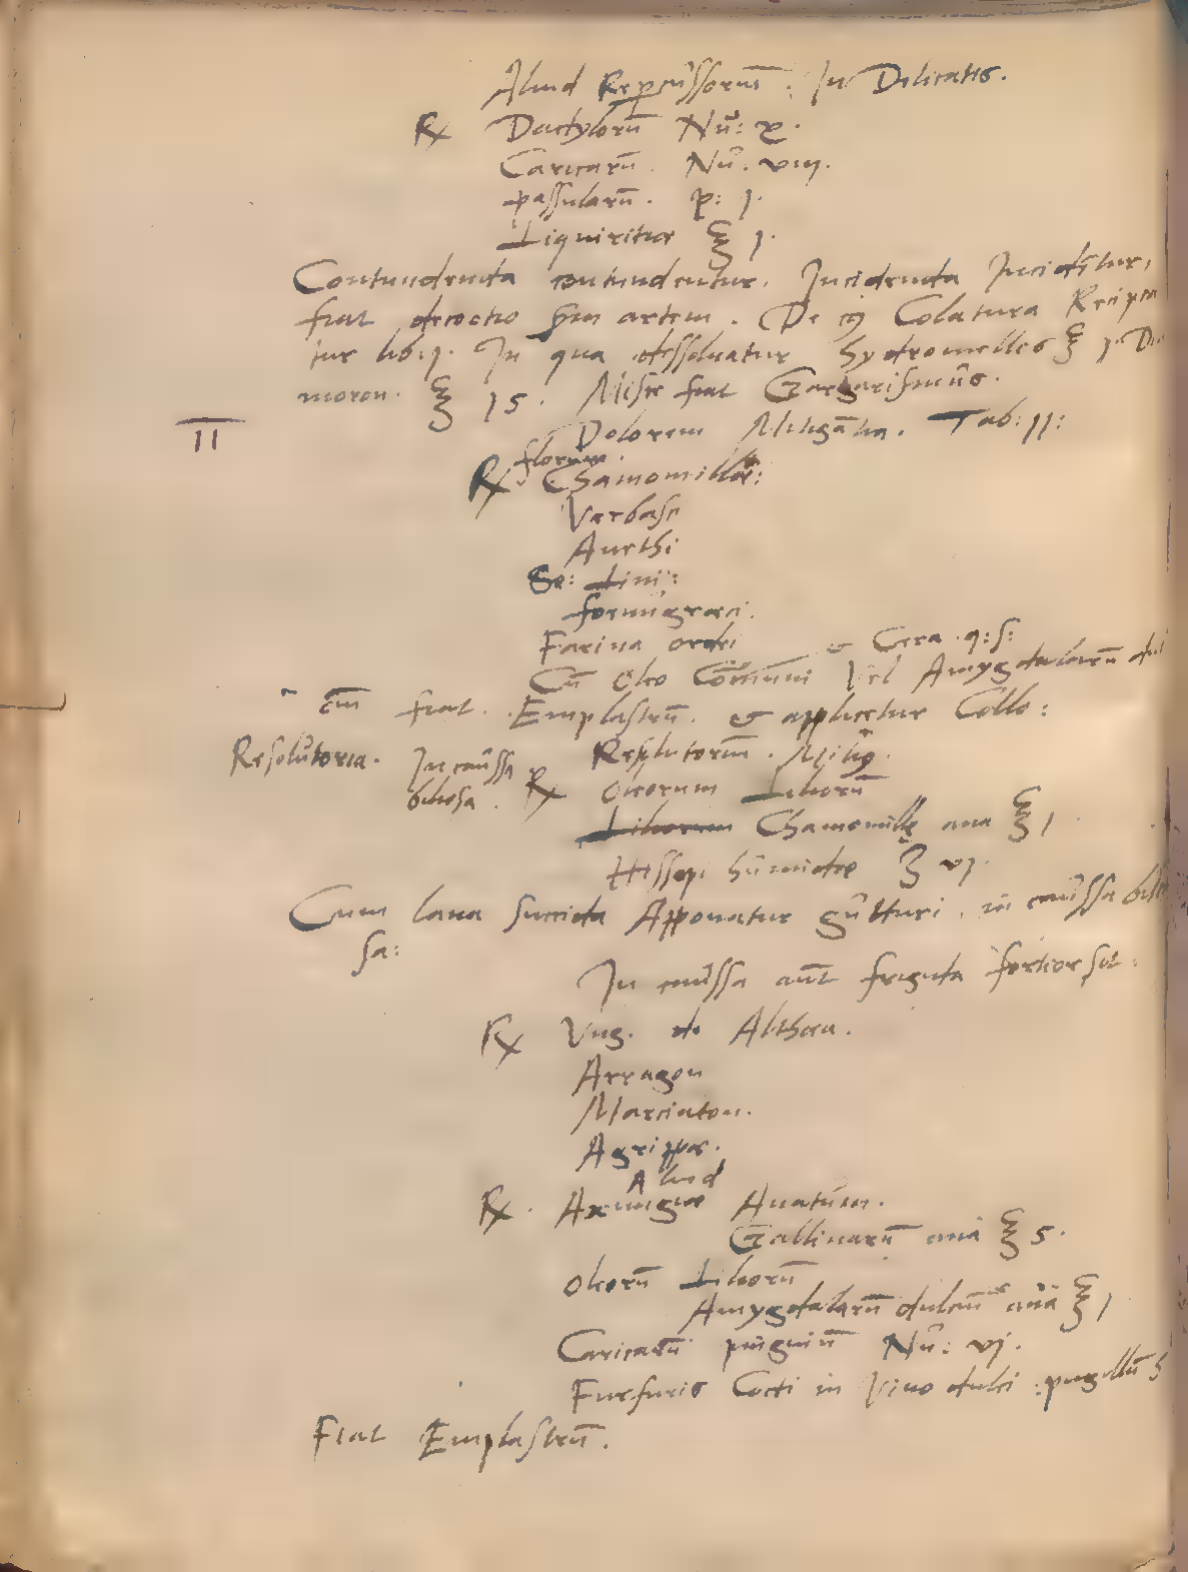 Aliud Repercussorum: In Delicatis.
℞ Dactylorū Nū: x.
Caricarū. Nū. viij.
passularū. p: j.
Liquiritiæ ℥ j.
Contundenda contundentur. Incidenda Incidātur,
fiat decoctio s̄m artem. De cꝫ Colatura Recipia
tur lib ij. In qua dissoluatur hydromelles ℥ j. Dia
moron. ℥ js. Misce fiat Gargarismūs.
II
Dolorem Mitigātia. Tab: 11:
florum
℞ Chamomillæ:
Verbasci
Anethi
Se: Lini:
foenugræci.
Farina ordei & Cera q:s:
Cū Oleo Cōmuni Vel Amygdalarū dul
cm̄ fiat. Emplastrū. & applicetur Collo:
Resolūtoria. In caūssa biliosa. Resolutoriū. Mitig.
℞ Oleorum Liliorū
Liliorum Chamomillę ana ℥ j
Hissopi hūmidæ ℥ vj.
Cum lana succida Apponatur gūtturi, in caūssa bilio
sa:
In caūssa aūt frigida fortior sit:
℞ Vng. de Althæa.
Arragon
Marciaton.
Agrippæ.
Aliud
℞. Axungiæ Anatūm.
Gallinarū anā ℥ s.
Oleorū Liliorū
Amygdalarū dulciū anā ℥ j
Caricarū pinguiū Nū: vj.
Furfuris Cocti in Vino dulci: pugillū s
Fiat Emplastrū.